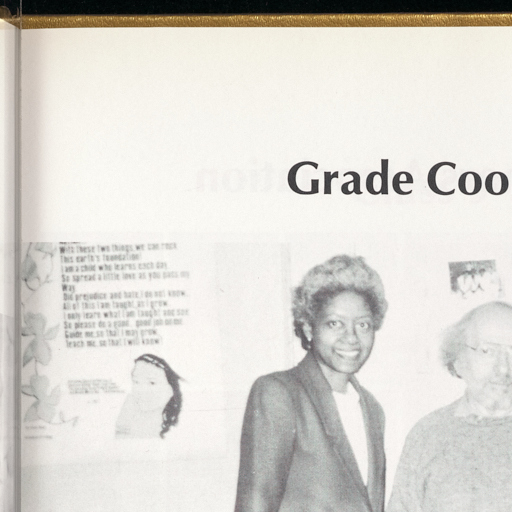 Grade Coo
With these two things, we can rock
This earth's foundation!
I am a child who learns each day,
So spread a little love as you pass my
Way.
Did prejudice and hate, I do not know,
All of this I am taught, as I grow.
I only learn what I am taught and see
So please do a good, good job on me.
Guide me, so that I may grow,
Teach me, so that I will know!